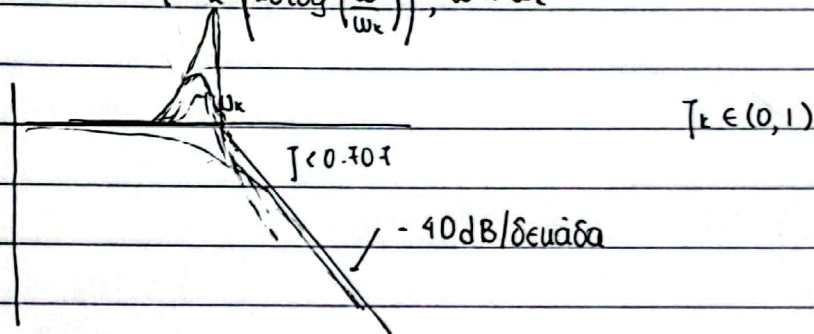 (20log(ω/ωκ)), ω
ωκ
ζκ ∈ (0,1)
ζ<0.707
- 40dB/δεκάδα